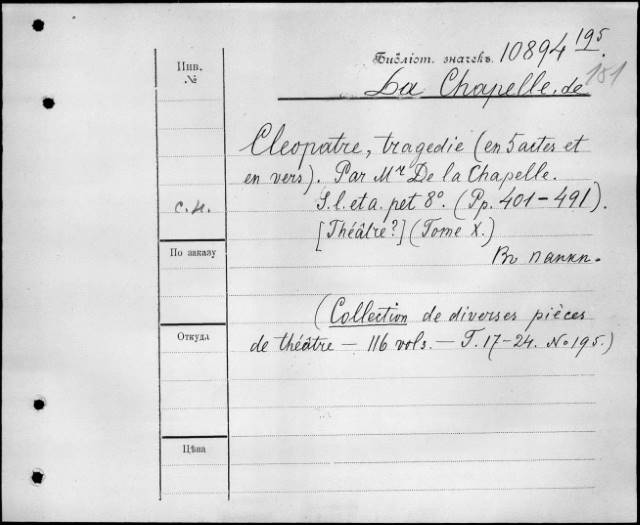 Инв.
№
Библіот. значекъ. 10894 195.
151
La Chapelle, de
Cleopatre, tragedie (en 5 actes et
en vers). Par Mr De la Chapelle.
с.н.
S. l. et a. pet 8º. (Pp. 401-491).
[Théâtre?] (Tome X.)
Въ папкп.
По заказу
(Collection de diverses pièces
de théâtre — 116 vols. — T. 17-24. No 195.)
Откуда
Цѣна